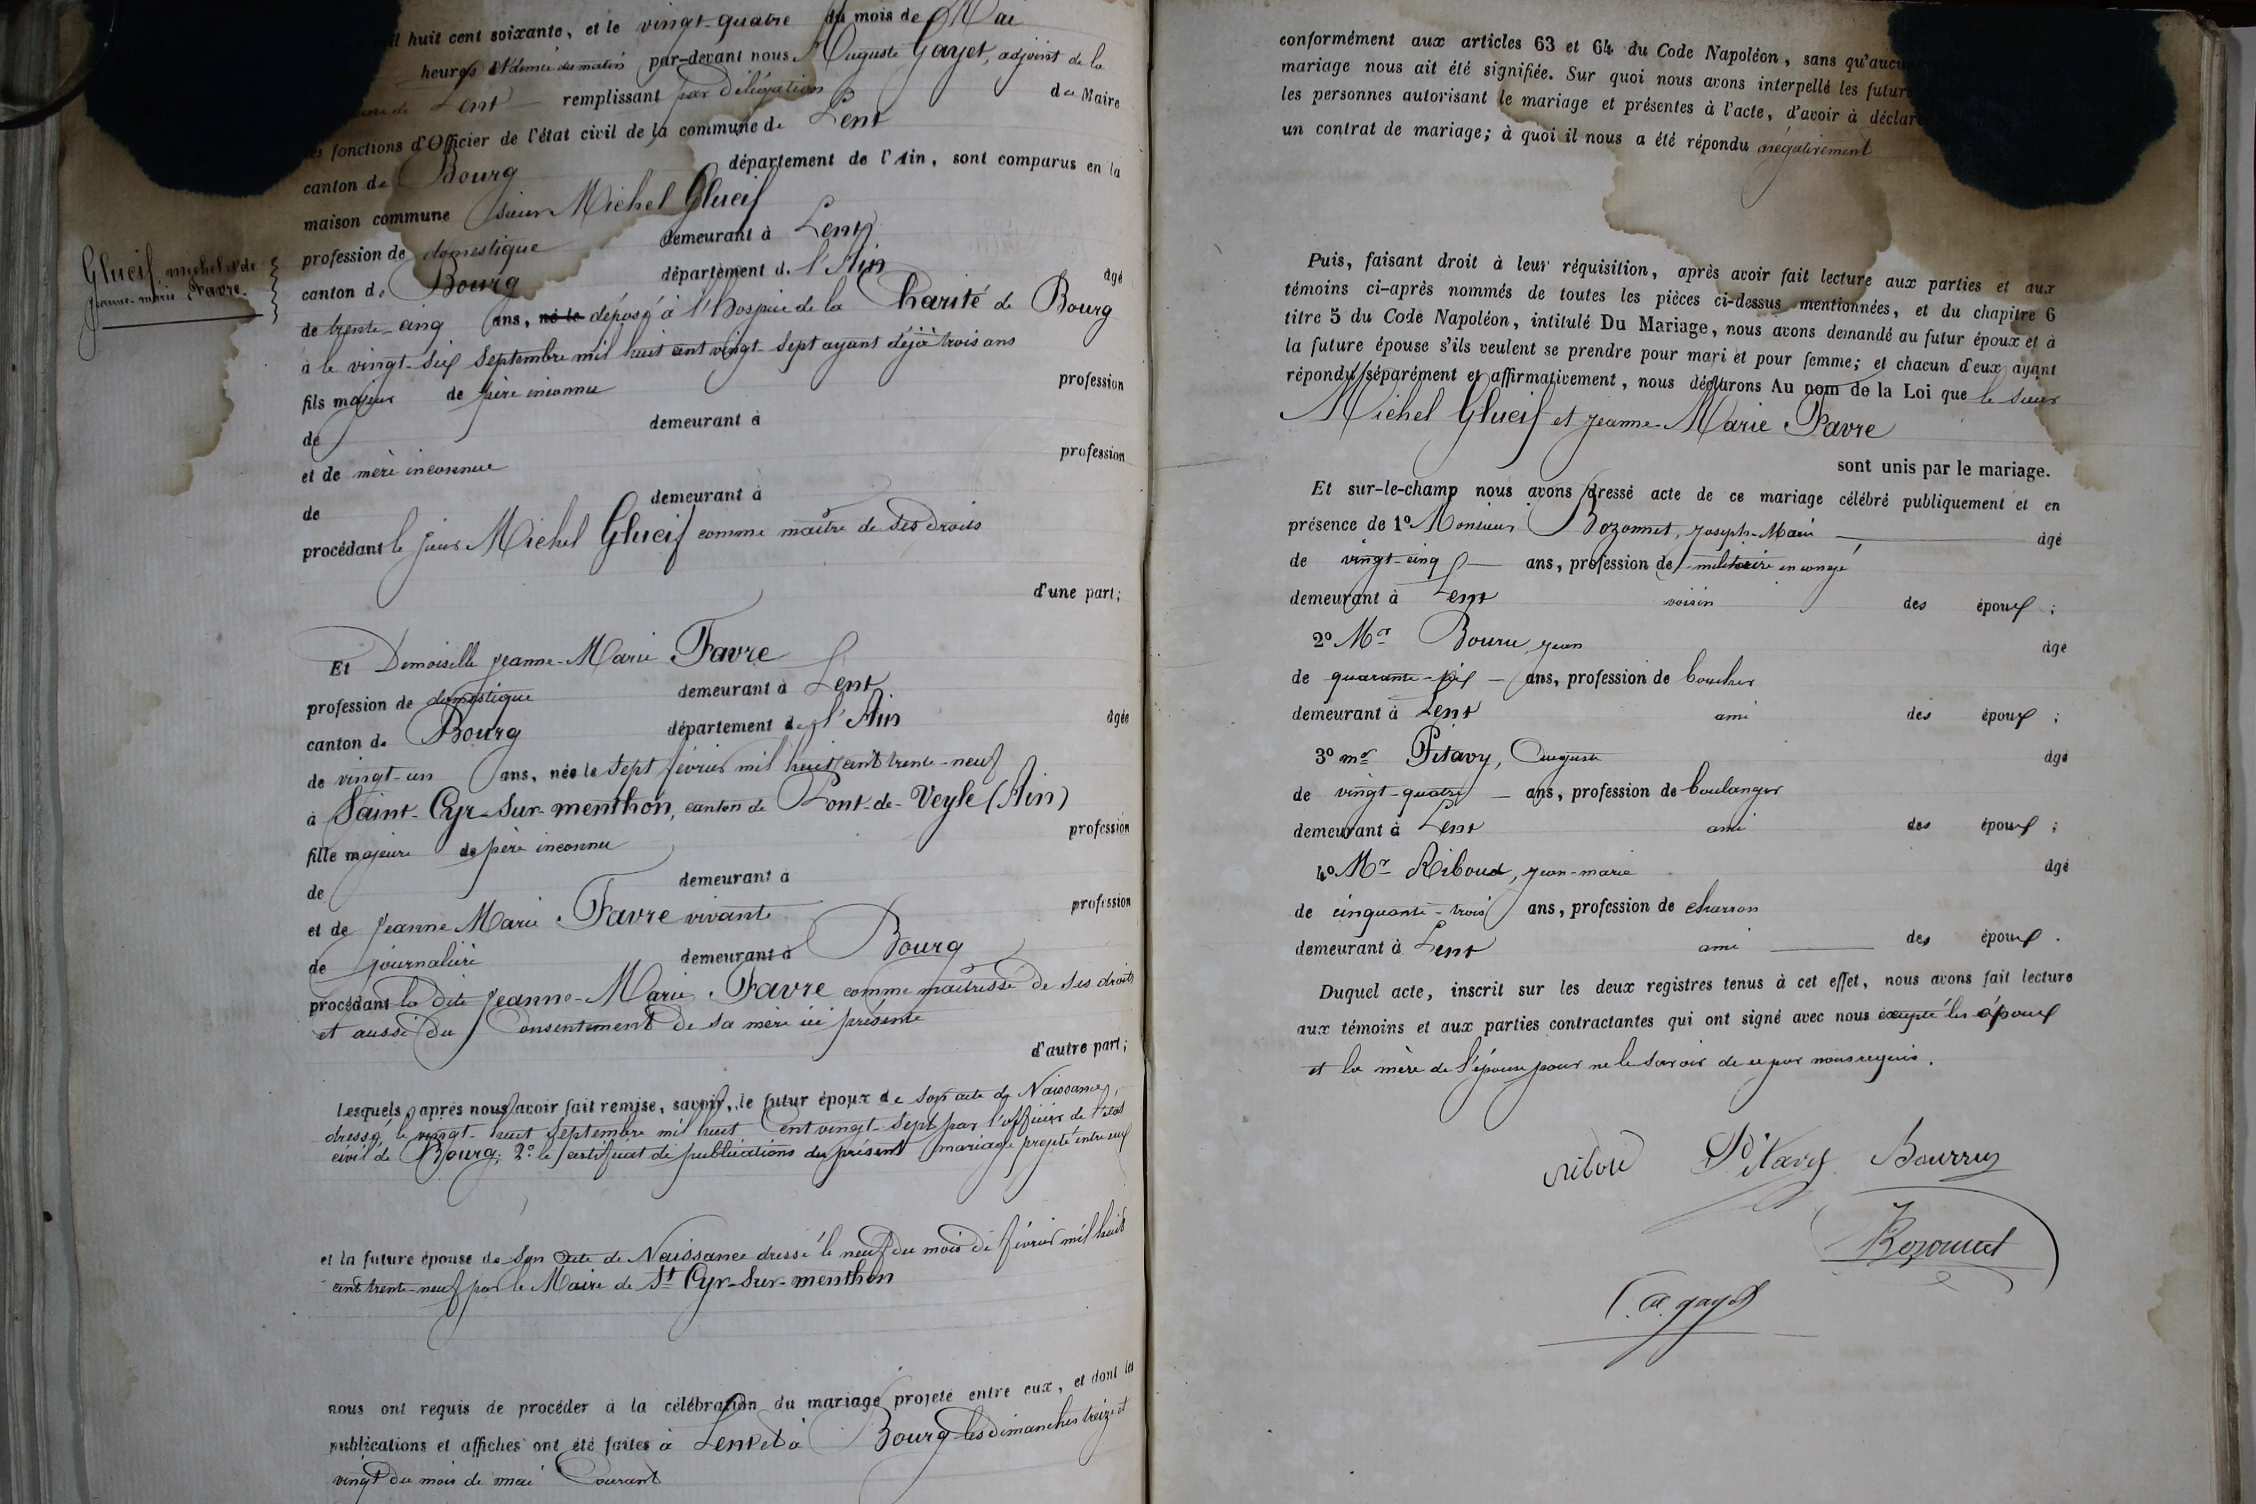 mil huit cent soixante, et le vingt-quatre du mois de Mai
heures et demie du matin par-devant nous Auguste Gayet, adjoint de la
commune de Lent remplissant par Délégation du Maire
les fonctions d'Officier de l'état civil de la commune de Lent
canton de Bourg département de l'Ain, sont comparus en la
maison commune sieur Michel Glucif
profession de domestique demeurant à Lent
Glucif michel et de
Jeanne-marie Favre.
canton de Bourg département de l'Ain âgé
de trente-cinq ans, né le déposé à l'hospice de la Charité de Bourg
à le vingt-six Septembre mil huit cent vingt-sept ayant déjà trois ans
fils majeur de père inconnu profession
de demeurant à
et de mère inconnue profession
de demeurant à
procédant le sieur Michel Glucif comme maître de ses droits
d'une part;
Et Demoiselle Jeanne-Marie Favre
profession de domestique demeurant à Lent
canton de Bourg département de l'Ain âgée
de vingt-un ans, née le sept février mil huit cent trente-neuf
à Saint-Cyr-sur-menthon, canton de Pont-de-Veyle (Ain)
fille majeure de père inconnu profession
de demeurant à
et de Jeanne Marie Favre vivante profession
de journalière demeurant à Bourg
procédant la dite Jeanne-Marie Favre comme maîtresse de ses droits
et aussi du Consentement de sa mère ici présente
d'autre part;
Lesquels après nous avoir fait remise, savoir, le futur époux de son acte de Naissance,
dressé, le vingt-huit septembre mil huit Cent vingt-sept par l'officier de l'état
civil de Bourg; 2º le Certificat de publications du présent mariage projeté entre eux
et la future épouse de son acte de Naissance dressé le neuf du mois de février mil huit
cent trente-neuf par le Maire de St Cyr-sur-menthon
nous ont requis de procéder à la célébration du mariage projeté entre eux, et dont les
publications et affiches ont été faites à Lent et à Bourg les dimanches treize et
vingt du mois de mai Courant
conformément aux articles 63 et 64 du Code Napoléon, sans qu'aucu
mariage nous ait été signifiée. Sur quoi nous avons interpellé les futur
les personnes autorisant le mariage et présentes à l'acte, d'avoir à déclar
un contrat de mariage; à quoi il nous a été répondu négativement
Puis, faisant droit à leur réquisition, après avoir fait lecture aux parties et aux
témoins ci-après nommés de toutes les pièces ci-dessus mentionnées, et du chapitre 6
titre 5 du Code Napoléon, intitulé Du Mariage, nous avons demandé au futur époux et à
la future épouse s'ils veulent se prendre pour mari et pour femme; et chacun d'eux ayant
répondu séparément et affirmativement, nous déclarons Au nom de la Loi que le sieur
Michel Glucif et Jeanne-Marie Favre
sont unis par le mariage.
Et sur-le-champ nous avons dressé acte de ce mariage célébré publiquement et en
présence de 1º Monsieur Bozonnet, Joseph-Marie âgé
de vingt-cinq ans, profession de militaire en congé
demeurant à Lent voisin des époux;
2º Mr Bourru, Jean âgé
de quarante-six ans, profession de boucher
demeurant à Lent ami des époux;
3º mr Pitavy, Auguste âgé
de vingt-quatre ans, profession de boulanger
demeurant à Lent ami des époux;
4º Mr Riboud, Jean-marie âgé
de cinquante-trois ans, profession de charron
demeurant à Lent ami des époux.
Duquel acte, inscrit sur les deux registres tenus à cet effet, nous avons fait lecture
aux témoins et aux parties contractantes qui ont signé avec nous excepté les époux
et la mère de l'épouse pour ne le savoir de ce par nous requis.
Pitavy Bourruz
Bozonnet
a. gayet